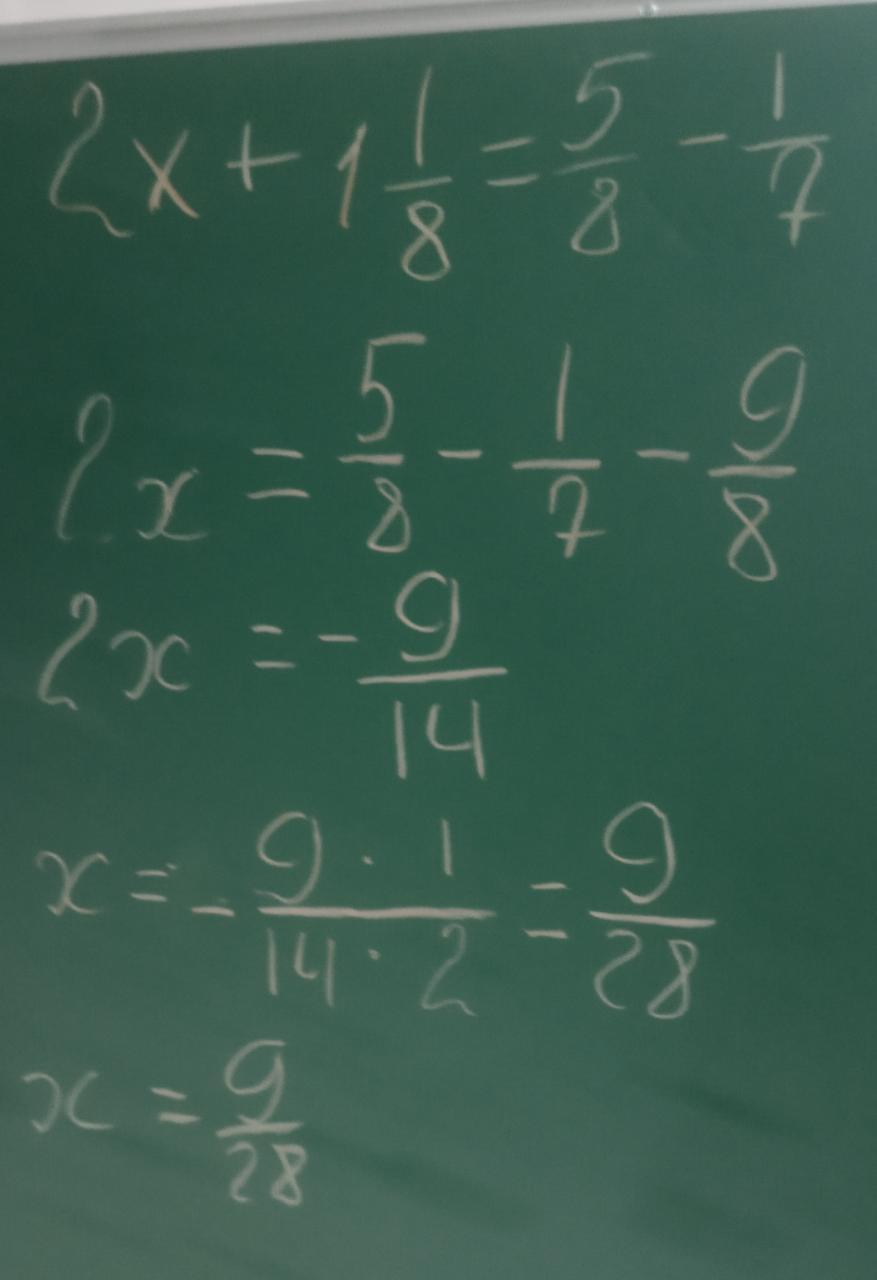 2x + 1 1/8 = 5/8 - 1/7
2x = 5/8 - 1/7 - 9/8
2x = - 9/14
x = - 9 · 1 / 14 · 2 = 9/28
x = 9/28